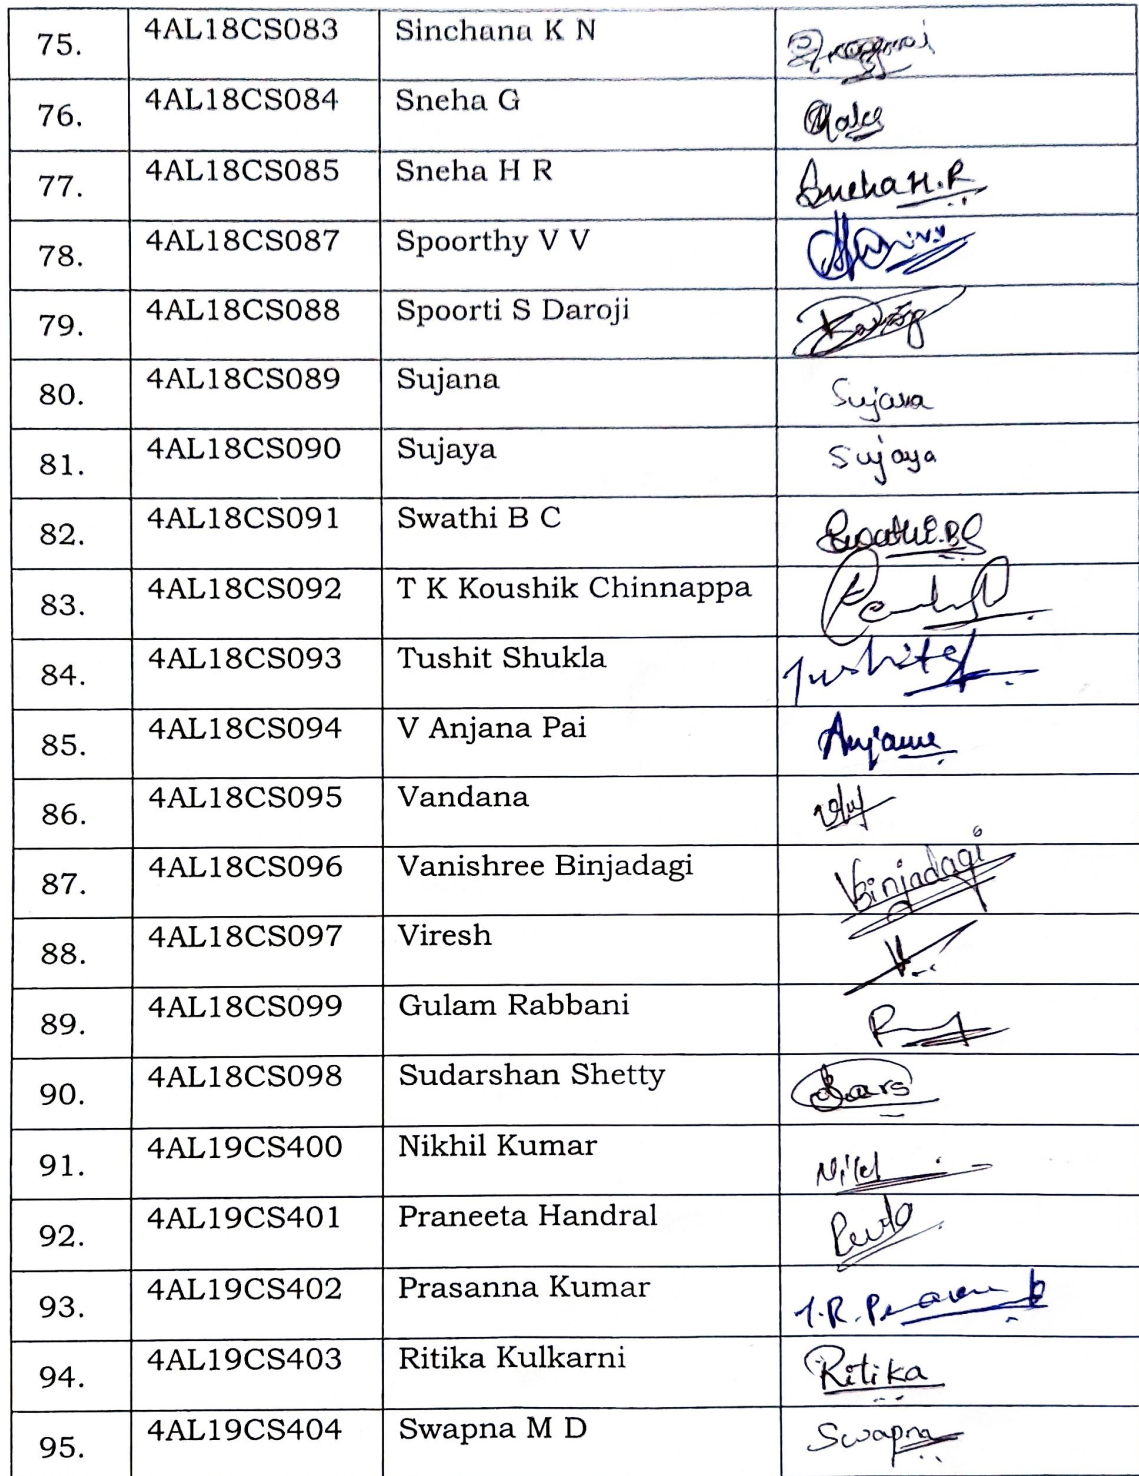 75. 4AL18CS083 Sinchana K N
76. 4AL18CS084 Sneha G
77. 4AL18CS085 Sneha H R Sneha H.R
78. 4AL18CS087 Spoorthy V V
79. 4AL18CS088 Spoorti S Daroji
80. 4AL18CS089 Sujana Sujana
81. 4AL18CS090 Sujaya Sujaya
82. 4AL18CS091 Swathi B C Swathi.BC
83. 4AL18CS092 T K Koushik Chinnappa
84. 4AL18CS093 Tushit Shukla
85. 4AL18CS094 V Anjana Pai Anjana
86. 4AL18CS095 Vandana
87. 4AL18CS096 Vanishree Binjadagi VBinjadagi
88. 4AL18CS097 Viresh
89. 4AL18CS099 Gulam Rabbani
90. 4AL18CS098 Sudarshan Shetty
91. 4AL19CS400 Nikhil Kumar
92. 4AL19CS401 Praneeta Handral
93. 4AL19CS402 Prasanna Kumar
94. 4AL19CS403 Ritika Kulkarni Ritika
95. 4AL19CS404 Swapna M D Swapna